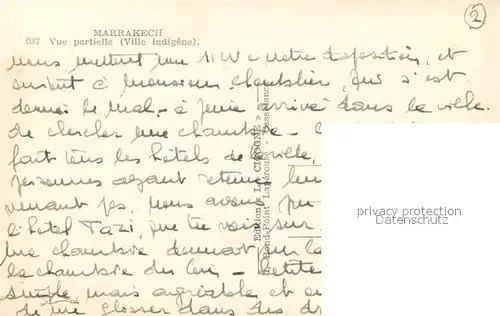 MARRAKECH
037 Vue partielle (Ville indigène).
2
nous mettent une à notre disposition, et
surtout à monsieur qui s'est
donné le mal - à peine arrivé dans la ville
de chercher une chambre -
fait tous les hôtels de ville,
personnes ayant retenu
venant pas, nous avons pu
l'hôtel Tazi, que tu vois sur
une chambre donnant sur la
la chambre du - petite
simple mais agréable et
de me glisser dans des
Editions "LA CIGOGNE"
Rond-Point Lapérouse - Casablanca
privacy protection